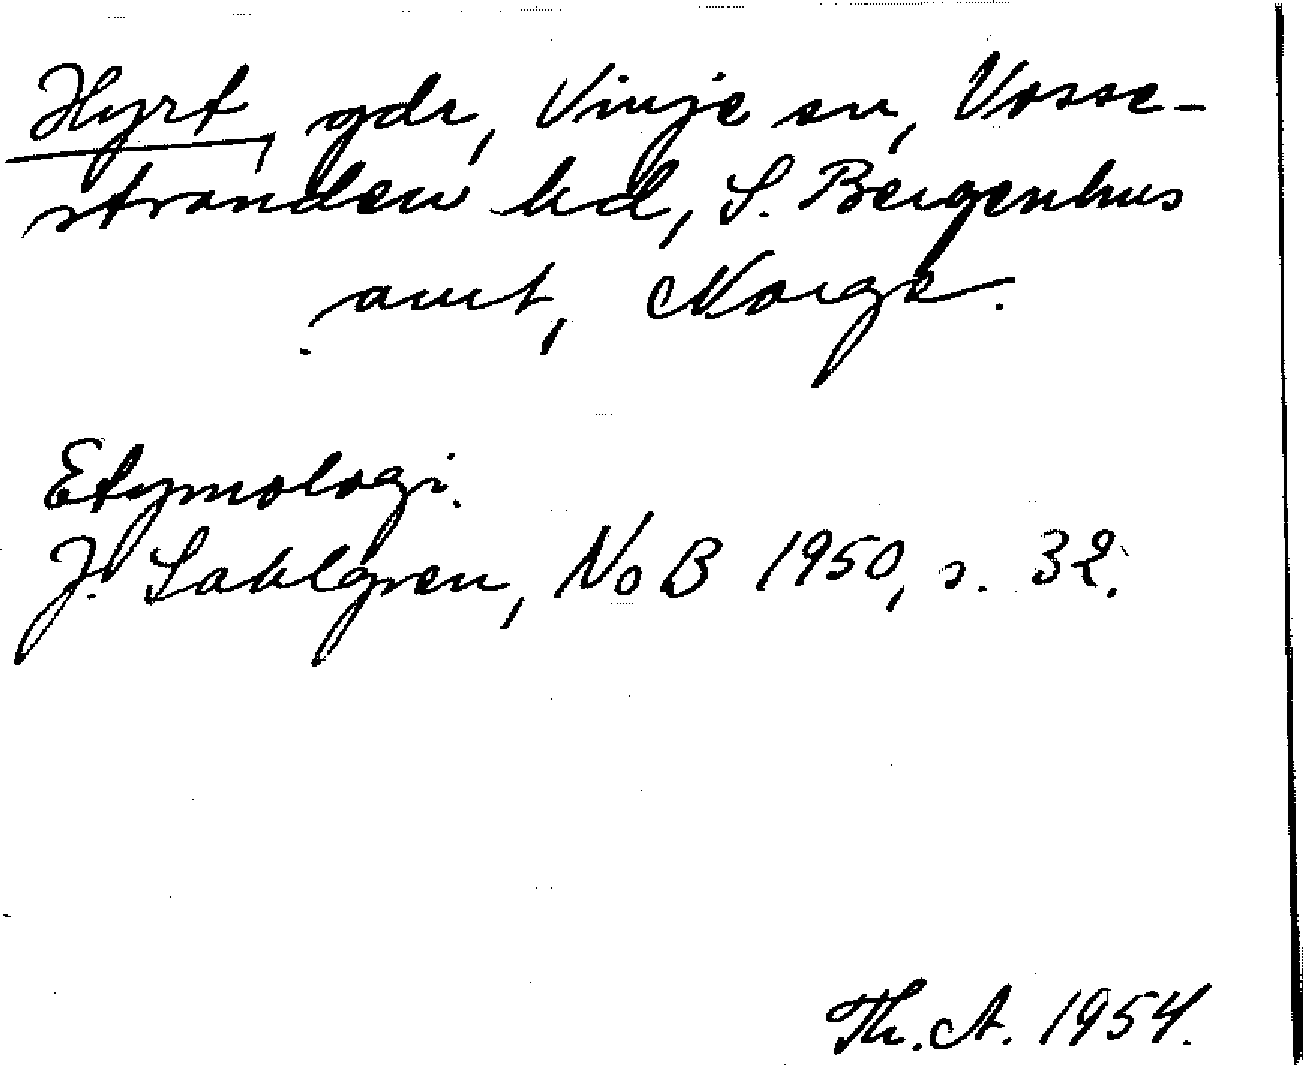 Hyrt, gdr, Vinje sn, Vosse-
stranden hd, S. Bergenhus
amt, Norge.
Etymologi.
J. Sahlgren, NoB 1950, s. 32.
Th. A. 1954.